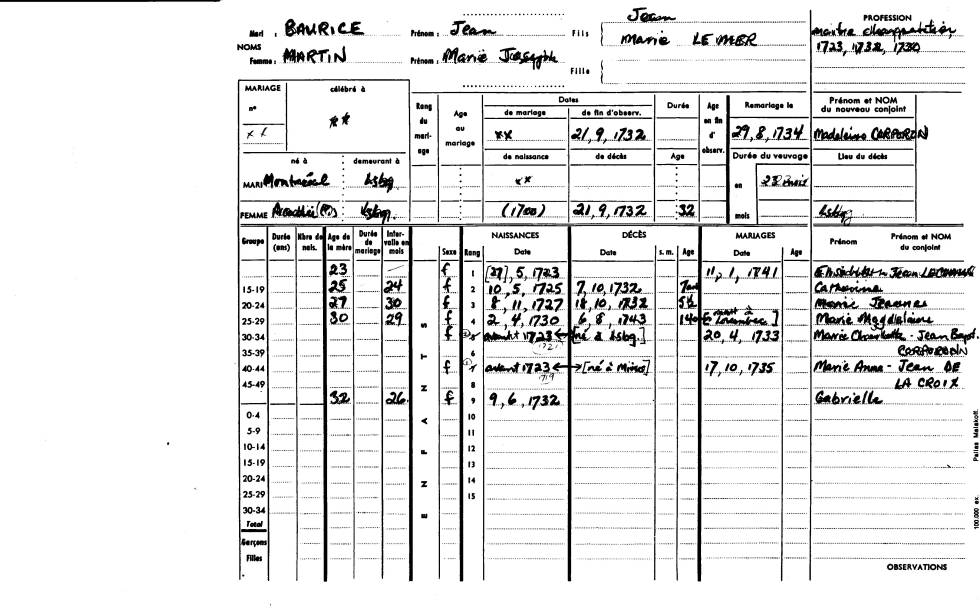 Mari : BAURICE Prénom : Jean Fils Jean
Marie LE MER
NOMS
Femme : MARTIN Prénom : Marie Joseph Fille
PROFESSION
maitre charpentier
1723, 1732, 1730
MARIAGE célébré à
n° ** 
xx
Rang du mariage Age au mariage Dates Durée Age en fin d'observ. Remariage le Prénom et NOM du nouveau conjoint
de mariage de fin d'observ.
xx 21, 9, 1732 29, 8, 1734 Madeleine CORPORON
né à demeurant à de naissance de décès Age Durée du veuvage Lieu du décès
MARI Montréal Lsbg. xx en 23 mois
FEMME Lsbg. (1700) 21, 9, 1732 32 mois Lsbg
Groupe Durée (ans) Nbre de nais. Age de la mère Durée de mariage Intervalle en mois ENFANTS Sexe Rang NAISSANCES DÉCÈS MARIAGES Prénom Prénom et NOM du conjoint
Date Date s. m. Age Date Age
23 — f 1 [27], 5, 1723 11, 1, 1741
15-19 25 24 f 2 10, 5, 1725 7, 10, 1732 7 Catherine
20-24 27 30 f 3 8, 11, 1727 18, 10, 1732 5½ Marie Jeanne
25-29 30 29 f 4 2, 4, 1730 6, 8, 1743 Marie Magdelaine
30-34 f 5 avant 1723 [né à Lsbg.] 20, 4, 1733 Marie Charlotte - Jean Bapt.
35-39 6 1721 CORPORON
40-44 f 7 avant 1723 [né à Mines] 17, 10, 1735 Marie Anne - Jean DE
45-49 1719 LA CROIX
32 26 f 9 9, 6, 1732 Gabrielle
0-4 10
5-9 11
10-14 12
15-19 13
20-24 14
25-29 15
30-34
Total
Garçons
Filles
OBSERVATIONS
100.000 ex. Pallas Malakoff.